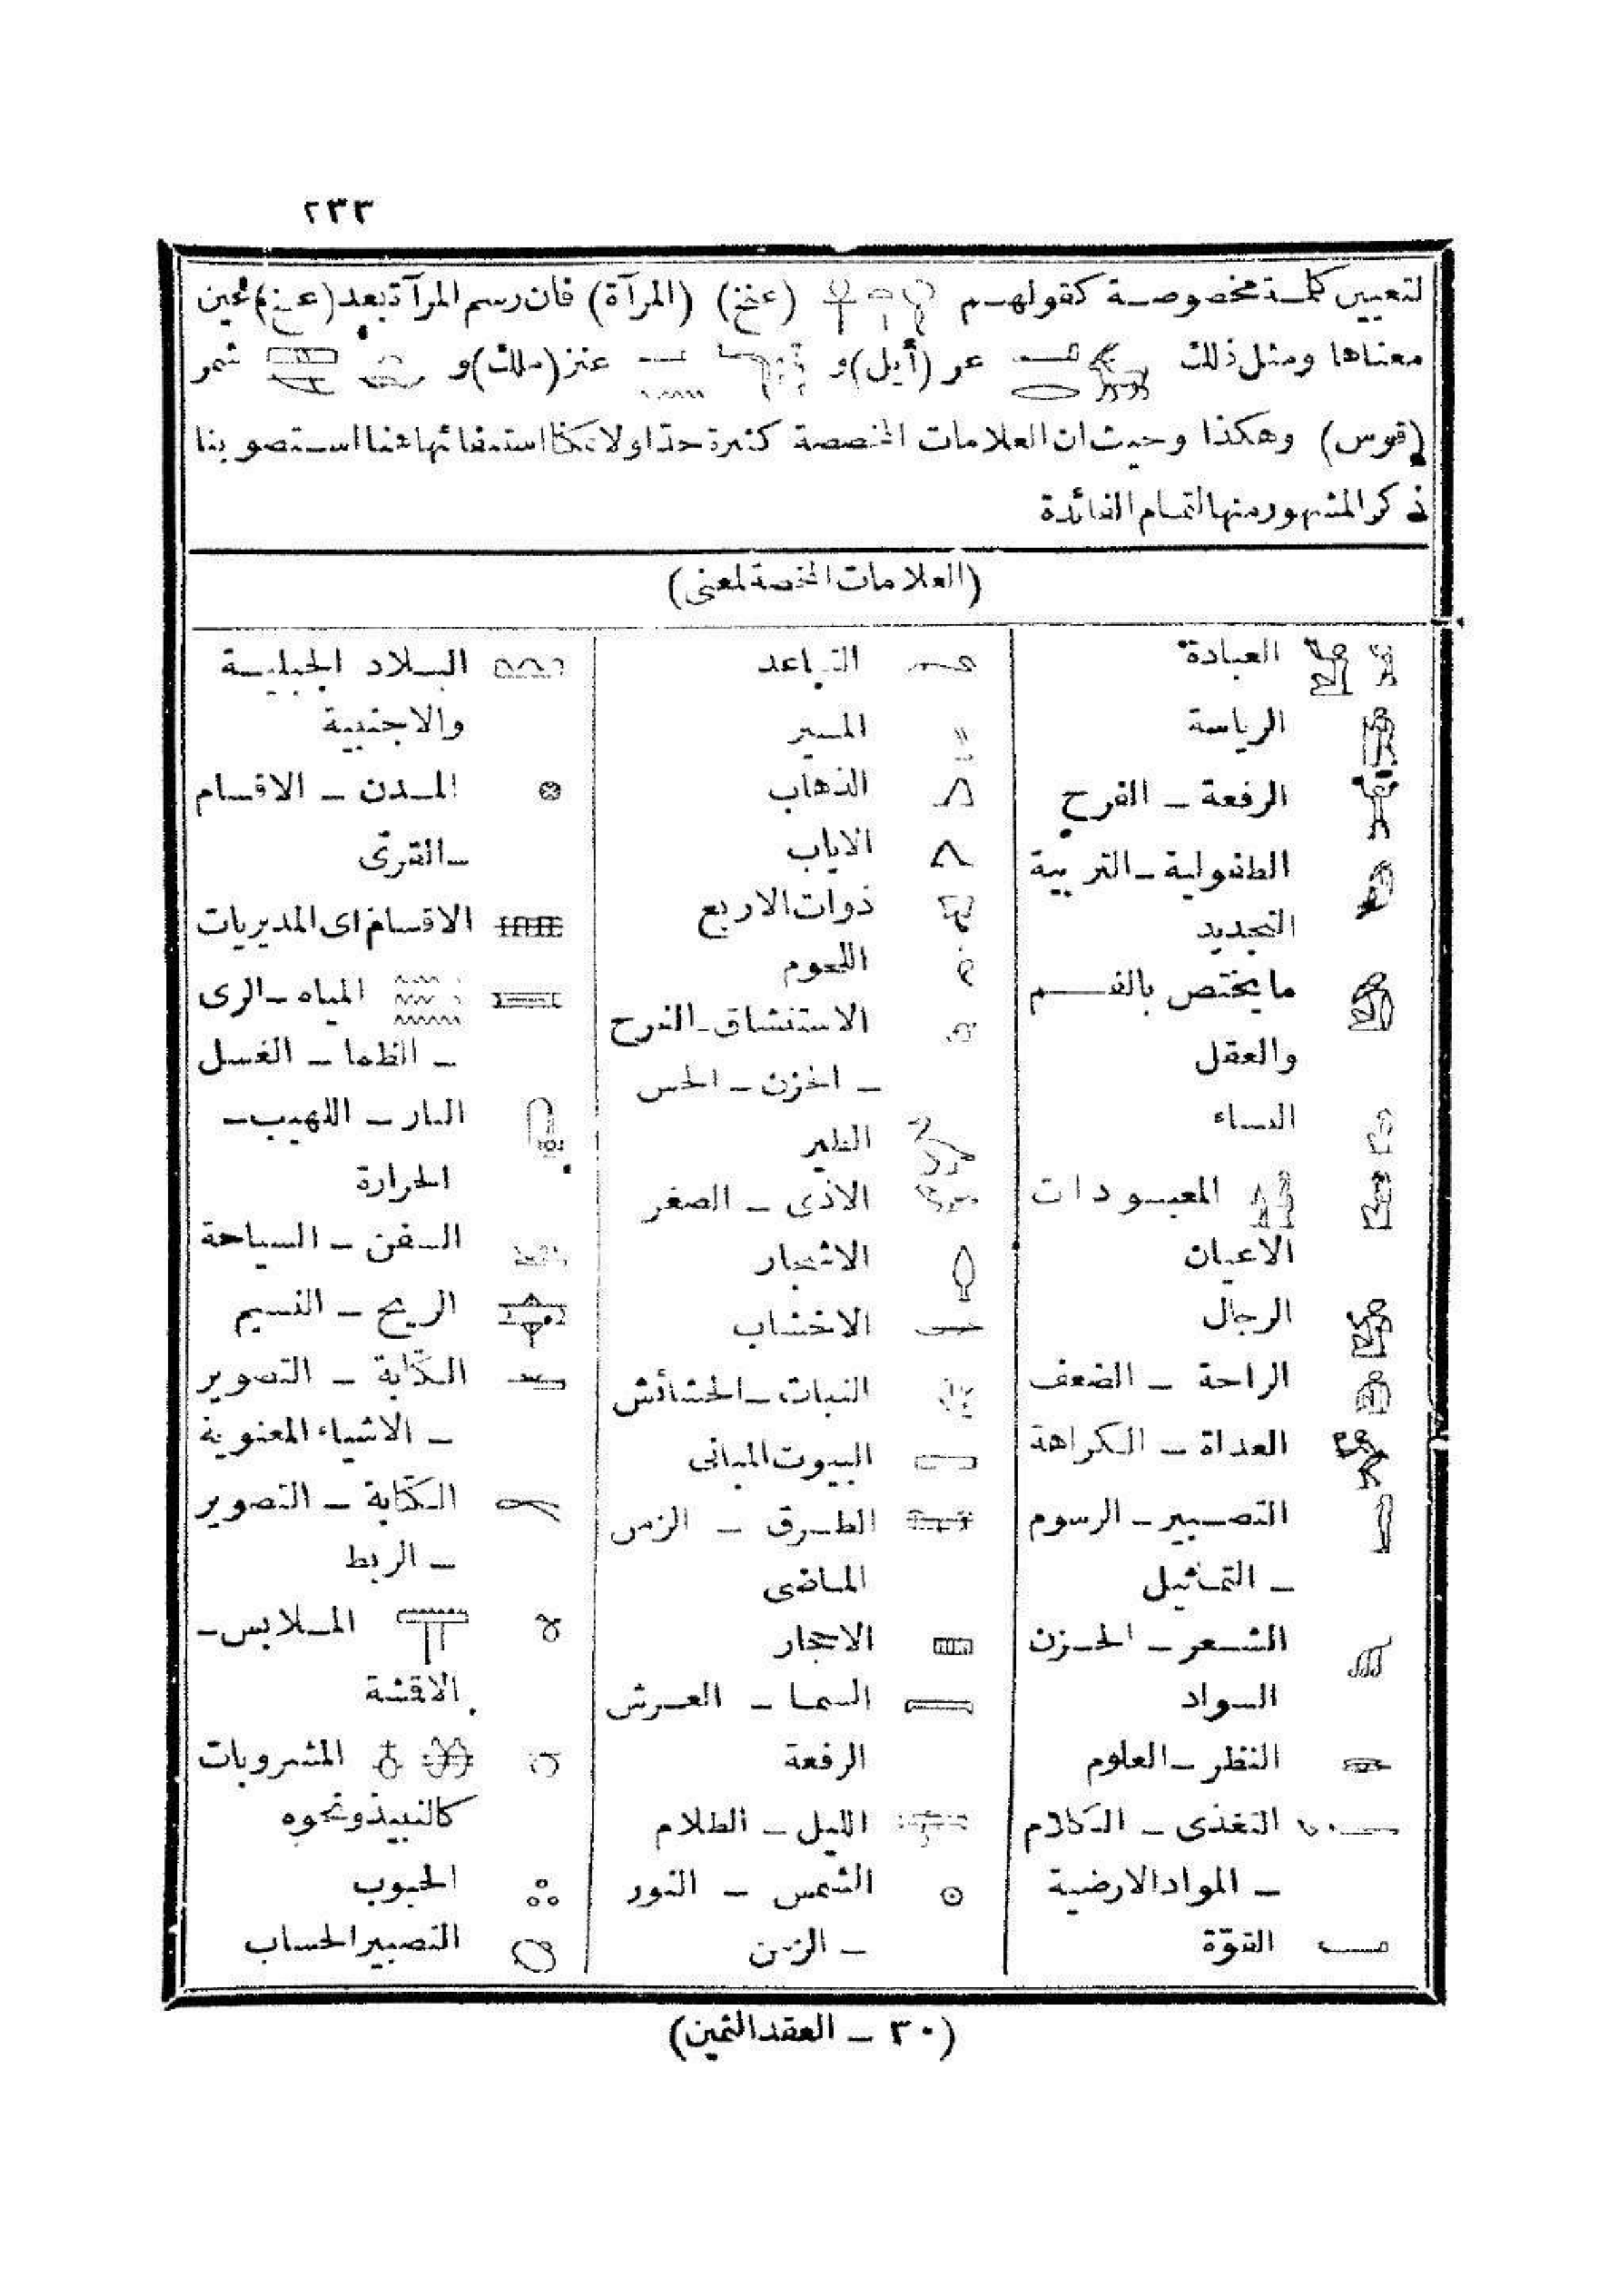 ٢٣٣
لتعيين كلمة مخصوصة كقولهم (عنخ) (المرآة) فان رسم المرآة بعد (عنخ) يعين
معناها ومثل ذلك عر (أيل) و عنز (ملك) و شمر
(قوس) وهكذا وحيث ان العلامات المخصصة كثيرة جدا ولا يمكننا استيفائها هنا استصوبنا
ذكر المشهور منها لتمام الفائدة
(العلامات المخصصة لمعنى)
العبادة
الرياسة
الرفعة ـ الفرح
الطفولية ـ التربية
التجديد
ما يختص بالفم
والعقل
النساء
المعبودات
الاعيان
الرجال
الراحة ـ الضعف
العداة ـ الكراهة
التصبير ـ الرسوم
ـ التماثيل
الشعر ـ الحزن
السواد
النظر ـ العلوم
التغذى ـ الكلام
ـ المواد الارضية
القوّة
التباعد
المسير
الذهاب
الاياب
ذوات الاربع
اللحوم
الاستنشاق ـ الفرح
ـ الحزن ـ الحس
الطير
الاذى ـ الصغر
الاشجار
الاخشاب
النبات ـ الحشائش
البيوت المبانى
الطرق ـ الزمن
الماضى
الاحجار
السما ـ العرش
الرفعة
الليل ـ الظلام
الشمس ـ النور
ـ الزمن
البلاد الجبلية
والاجنبية
المدن ـ الاقسام
ـ القرى
الاقسام اى المديريات
المياه ـ الرى
ـ الظما ـ الغسل
النار ـ اللهيب ـ
الحرارة
السفن ـ السياحة
الريح ـ النسيم
الكتابة ـ التصوير
ـ الاشياء المعنوية
الكتابة ـ التصوير
ـ الربط
الملابس ـ
الاقشة
المشروبات
كالنبيذ ونحوه
الحبوب
التصبير الحساب
(٣٠ ـ العقد الثمين)